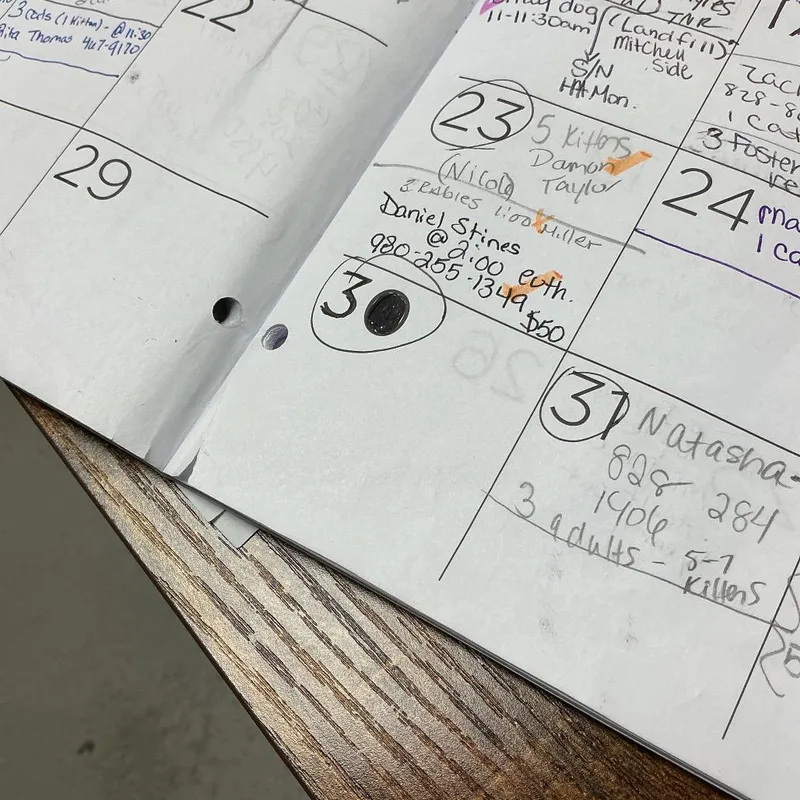 3 cats (1 Kitten) - @ 11:30
Rita Thomas 467-9170
22
29
dog (Landfill)
11-11:30am Mitchell
Side
S/N
Mon.
TNR
23 5 Kittens
Damon
Taylor
(Nicole)
3 Rabies 1:00 Miller
Daniel Stines
@ 2:00 euth.
980-255-1349
$50
30
24
1 ca
828-8
3 Foster
31 Natasha-
828 284
1906
3 adults - 5-7
Kittens